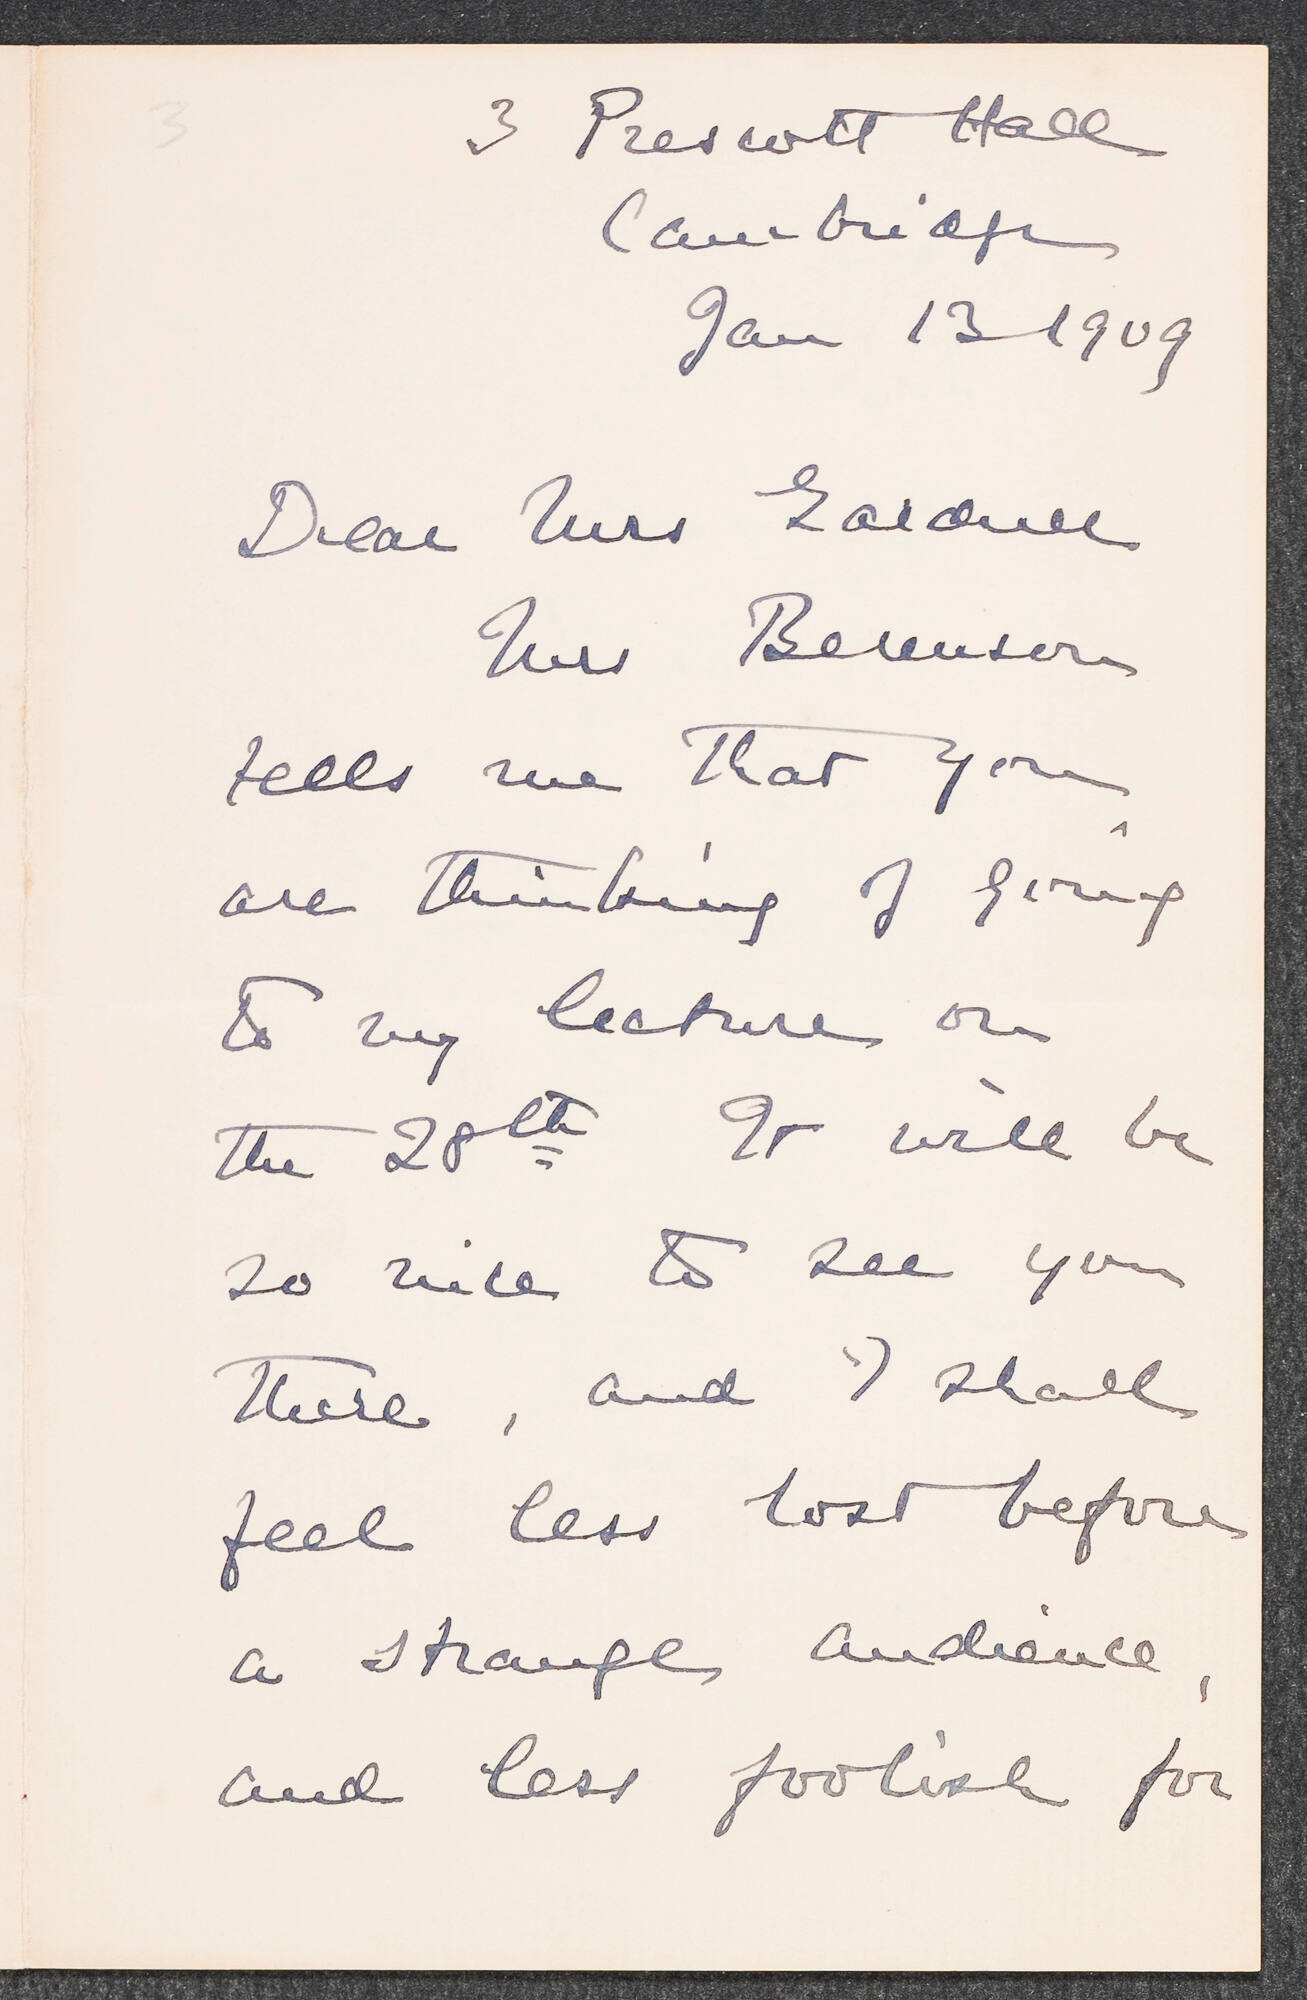 3
3 Prescott Hall
Cambridge
Jan 13 1909
Dear Mrs Gardner
Mrs Berenson
tells me that you
are thinking of going
to my lecture on
the 28th It will be
so nice to see you
there, and I shall
feel less lost before
a strange audience,
and less foolish for